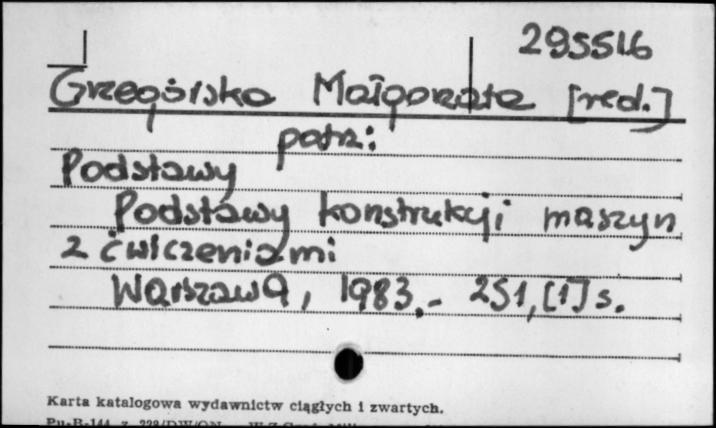 295516
Grzegórska Małgorzata [red.]
patrz:
Podstawy
Podstawy konstrukcji maszyn
z ćwiczeniami
Warszawa, 1983.- 251, [1] s.
Karta katalogowa wydawnictw ciągłych i zwartych.
Pu-B-144 z.